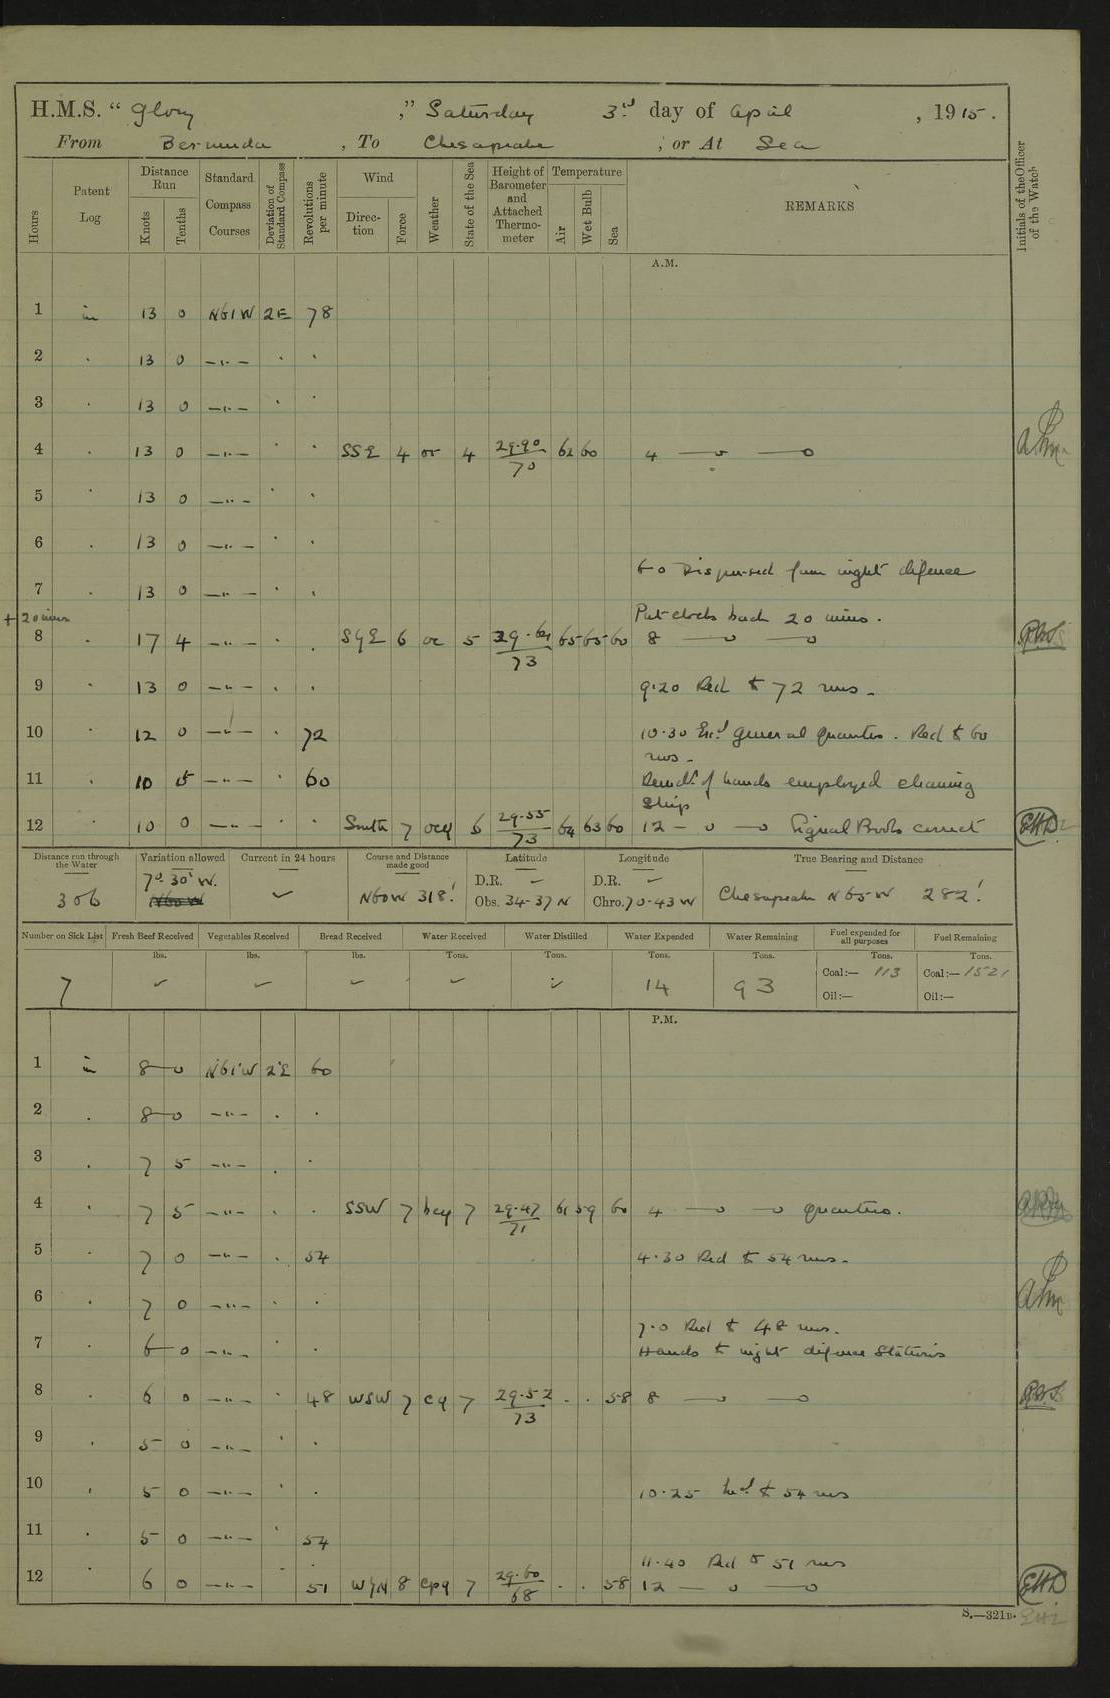 H.M.S. "Glory," Saturday 3rd day of April, 1915.
From Bermuda, To Chesapeake, or At Sea
Hours Patent Log Distance Run Knots Tenths Standard Compass Courses Deviation of Standard Compass Revolutions per minute Wind Direction Force Weather State of the Sea Height of Barometer and Attached Thermometer Temperature Air Wet Bulb Sea REMARKS Initials of the Officer of the Watch
A.M.
1 in 13 0 N61W 2E 78
2 . 13 0 —"— . .
3 . 13 0 —"— . .
4 . 13 0 —"— . . SSE 4 or 4 29.90/70 62 60 4 —o —o
5 . 13 0 —"— . .
6 . 13 0 —"— . .
6.0 Dispersed from night defence
7 . 13 0 —"— . .
+20 mins Put clocks back 20 mins.
8 . 17 4 —"— . . SyE 6 oc 5 29.64/73 65 65 60 8 —o —o
9 . 13 0 —"— . . 9.20 Red to 72 revs.
10 . 12 0 —"— . 72 10.30 Exd General Quarters. Red to 60
revs.
11 . 10 5 —"— . 60 Remdr of hands employed cleaning
Ship
12 . 10 0 —"— . . South 7 ocq 6 29.55/73 64 63 60 12 — o —o Signal Books correct EHD
Distance run through the Water Variation allowed Current in 24 hours Course and Distance made good Latitude Longitude True Bearing and Distance
306 7° 30' W. N60W 318' D.R. Obs. 34-37 N D.R. Chro. 70-43 W Chesapeake N65W 282'
Number on Sick List Fresh Beef Received Vegetables Received Bread Received Water Received Water Distilled Water Expended Water Remaining Fuel expended for all purposes Fuel Remaining
lbs. lbs. lbs. Tons. Tons. Tons. Tons. Tons. Tons.
7 14 93 Coal:— 113 Coal:— 1521
Oil:— Oil:—
P.M.
1 in 8 0 N61W 2E 60
2 . 8 0 —"— . .
3 . 7 5 —"— . .
4 . 7 5 —"— . . SSW 7 bcq 7 29.47/71 61 59 60 4 —o —o Quarters.
5 . 7 0 —"— . 54 4.30 Red to 54 revs.
6 . 7 0 —"— . .
7.0 Red to 48 revs.
7 . 6 0 —"— . . Hands to night defence Stations
8 . 6 0 —"— . 48 WSW 7 cq 7 29.52/73 . . 58 8 —o —o
9 . 5 0 —"— . .
10 . 5 0 —"— . . 10.25 Incd to 54 revs
11 . 5 0 —"— . 54
11.40 Red to 51 revs
12 . 6 0 —"— . 51 WyN 8 cpq 7 29.60/68 . . 58 12 — o —o EHD
S.—321D.